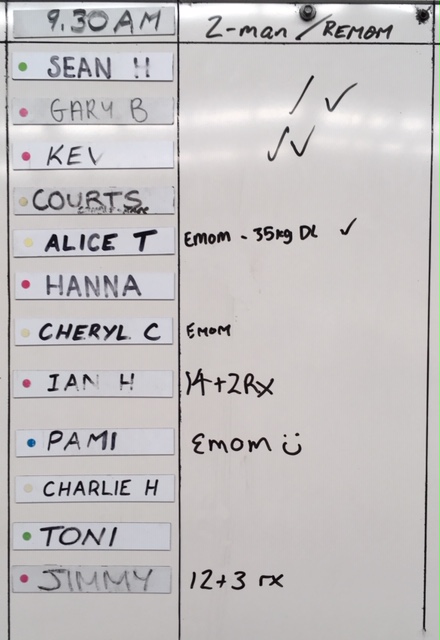 9.30AM 2-man / REMOM
SEAN H
GARY B / ✓
KEV ✓✓
COURTS
ALICE T EMOM - 35kg DL ✓
HANNA
CHERYL C EMOM
IAN H 14+2Rx
PAMI EMOM
CHARLIE H
TONI
JIMMY 12+3 rx